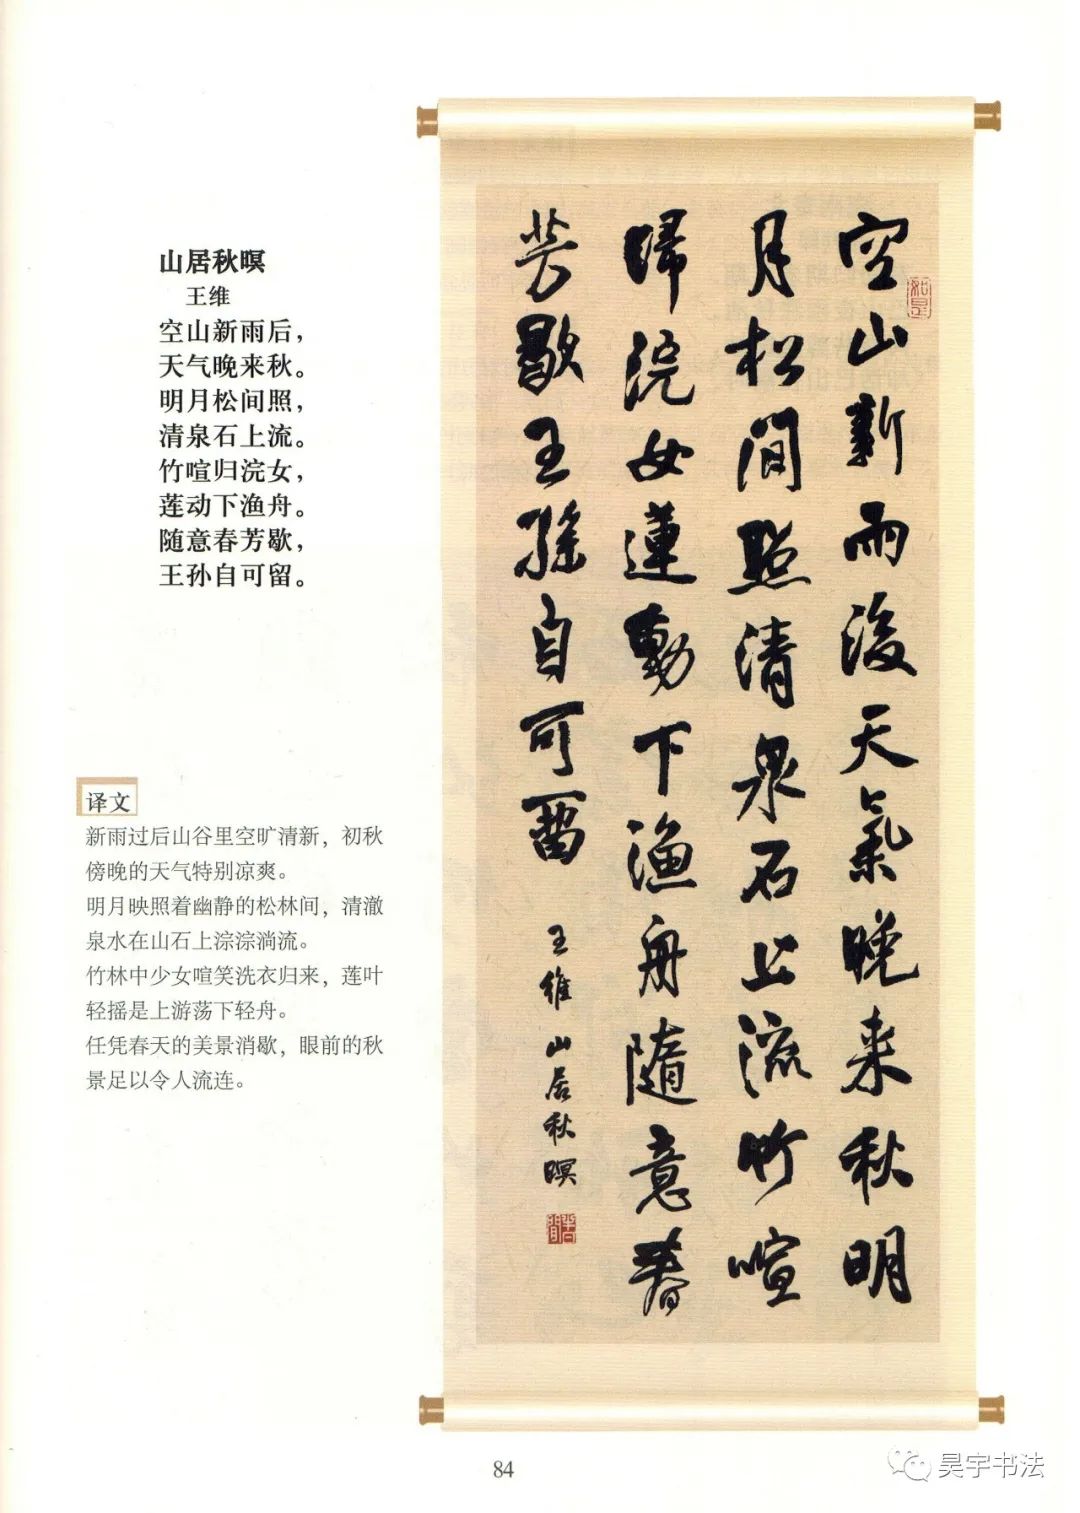 山居秋暝
王维
空山新雨后，
天气晚来秋。
明月松间照，
清泉石上流。
竹喧归浣女，
莲动下渔舟。
随意春芳歇，
王孙自可留。
译文
新雨过后山谷里空旷清新，初秋
傍晚的天气特别凉爽。
明月映照着幽静的松林间，清澈
泉水在山石上淙淙淌流。
竹林中少女喧笑洗衣归来，莲叶
轻摇是上游荡下轻舟。
任凭春天的美景消歇，眼前的秋
景足以令人流连。
空山新雨後天氣晚来秋明
月松間照清泉石上流竹喧
歸浣女蓮動下漁舟隨意春
芳歇王孫自可留
王維山居秋暝
如是
84
昊宇书法